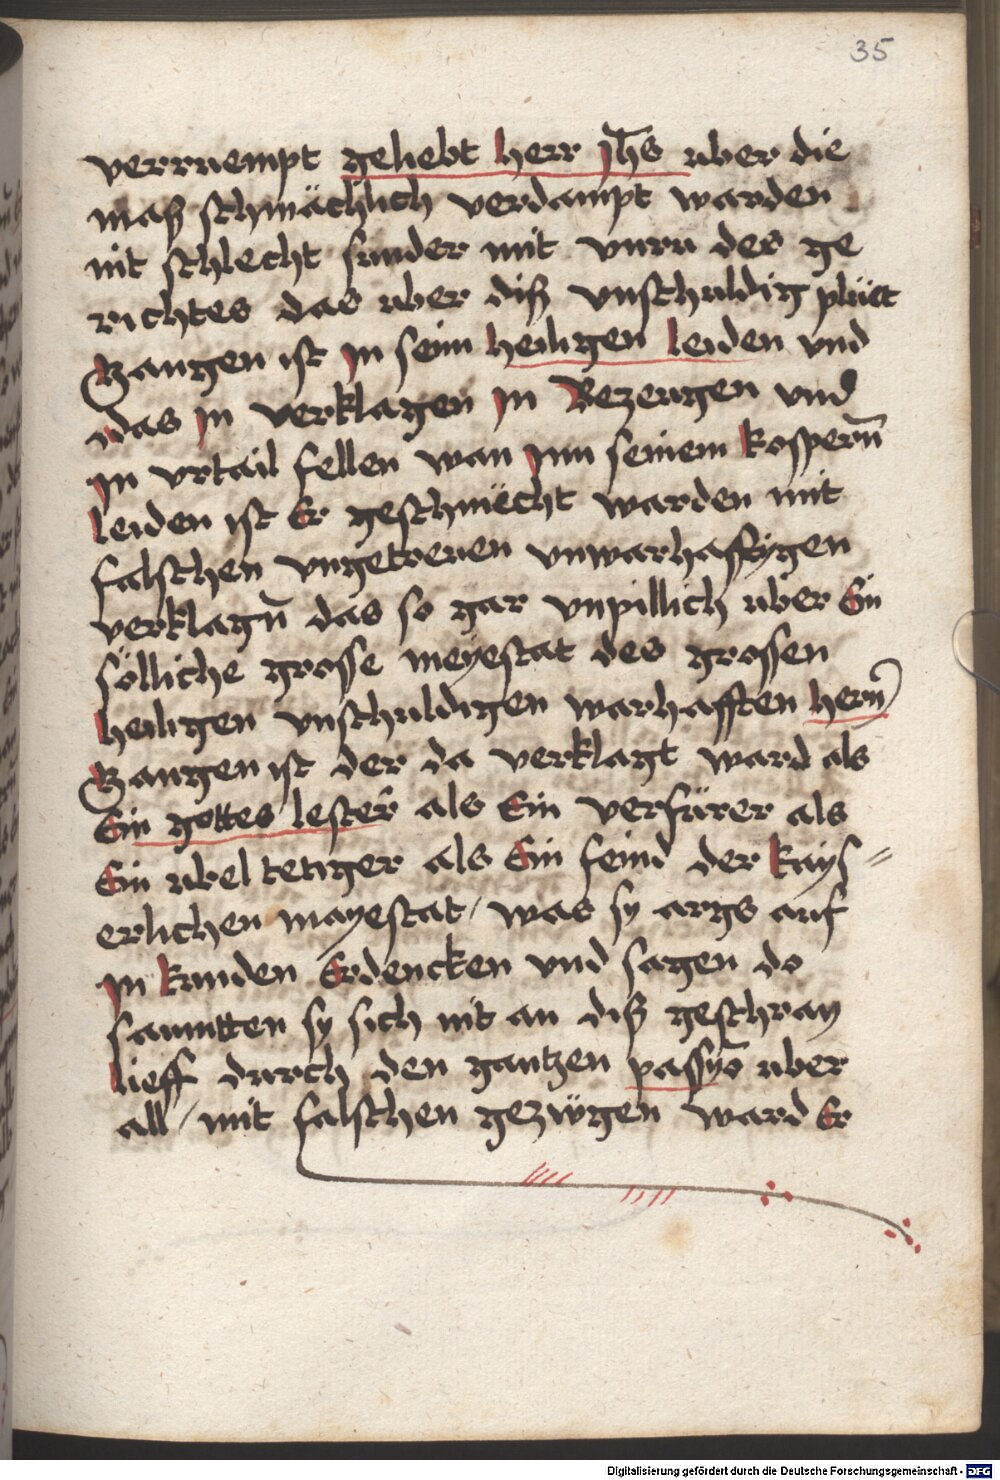 35
verruempt geliebt herr jh̅s uber die
maß schmächlich verdampt warden
nit schlecht sunder mit vnru des ge
richtes das uber diß vnschuldig plüet
Gangen ist jn seim heiligen leiden vnd
das jn verklagen jn Bezeugen vnd
jn vrtail fellen wan jnn seinem kospern̅
leiden ist Er geschmëcht warden mit
falschen vngetreuen vnwarhafftygen
verklagn̅ das so gar vnpillich uber Ein
sölliche grosse meyestat des grossen
heiligen vnschuldigen warhafften hern̅
Gangen ist der da verklagt ward als
Ein gottes lester als Ein verfürer als
Ein ubel tetiger als Ein feind der kays=
erlichen mayestat / was sy args auf
jn kunden Erdencken vnd sagen do
saumtten sy sich nit an diß geschray
lieff durch den gantzen passyo̅ uber
all / mit falschen gezwgen ward Er
Digitalisierung gefördert durch die Deutsche Forschungsgemeinschaft - DFG